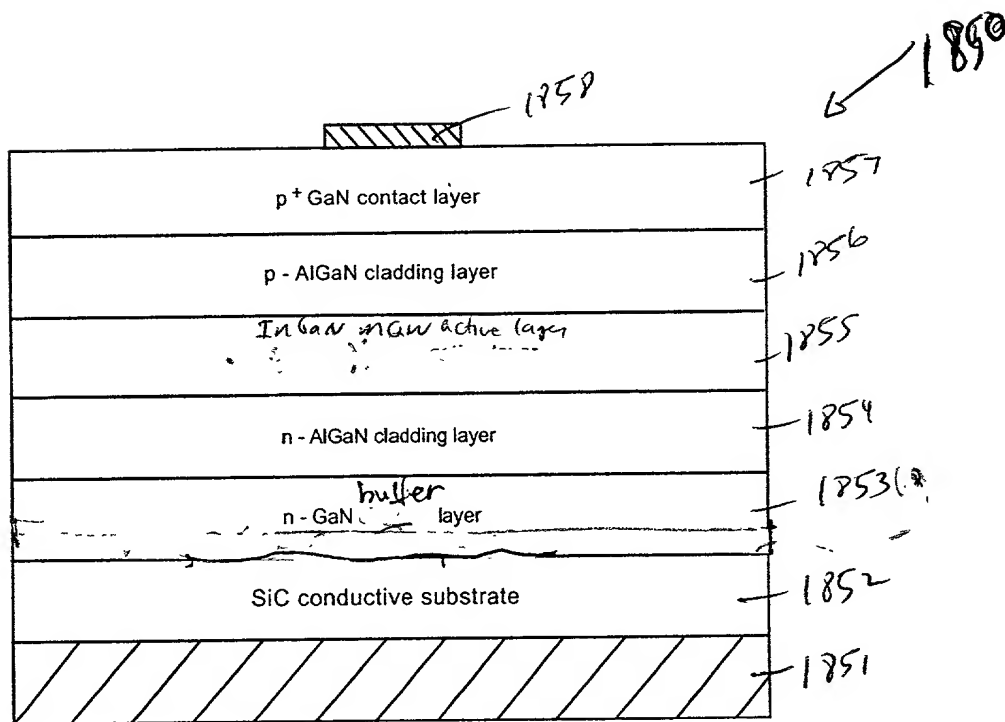 1850
1858
p+ GaN contact layer
1857
p - AlGaN cladding layer
1856
InGaN MQW active layer
1855
n - AlGaN cladding layer
1854
buffer
n - GaN layer
1853
SiC conductive substrate
1852
1851